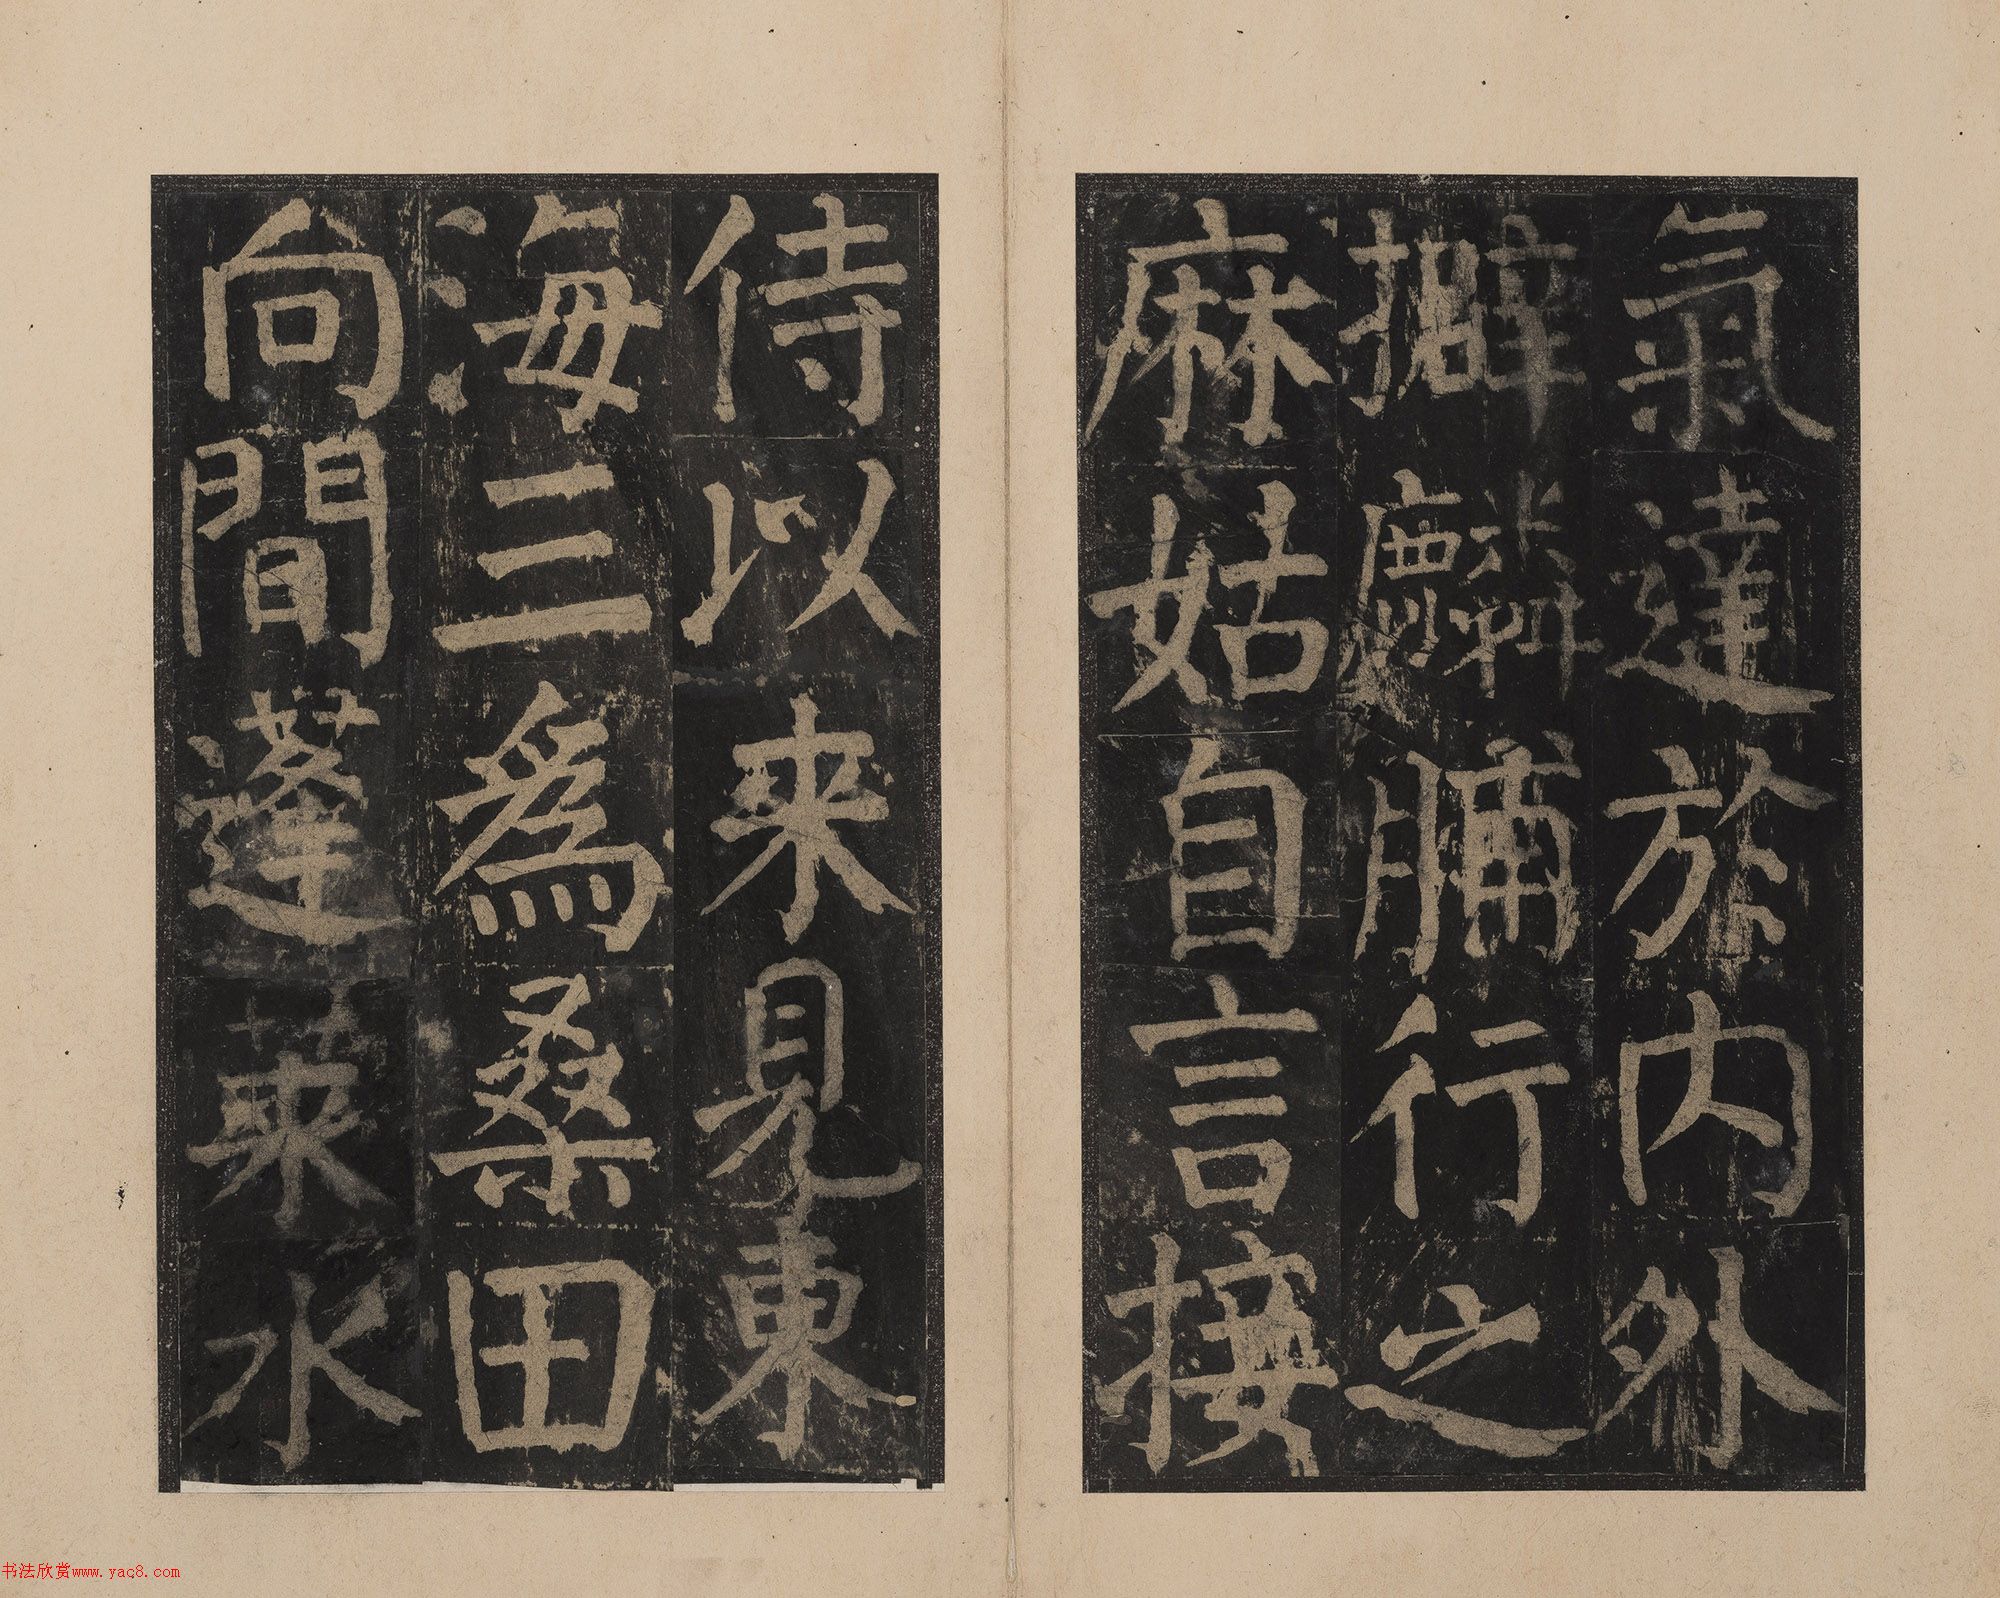 氣達於内外
擗麟脯行之
麻姑自言接
侍以来見東
海三為桑田
向間蓬莱水
书法欣赏www.yac8.com